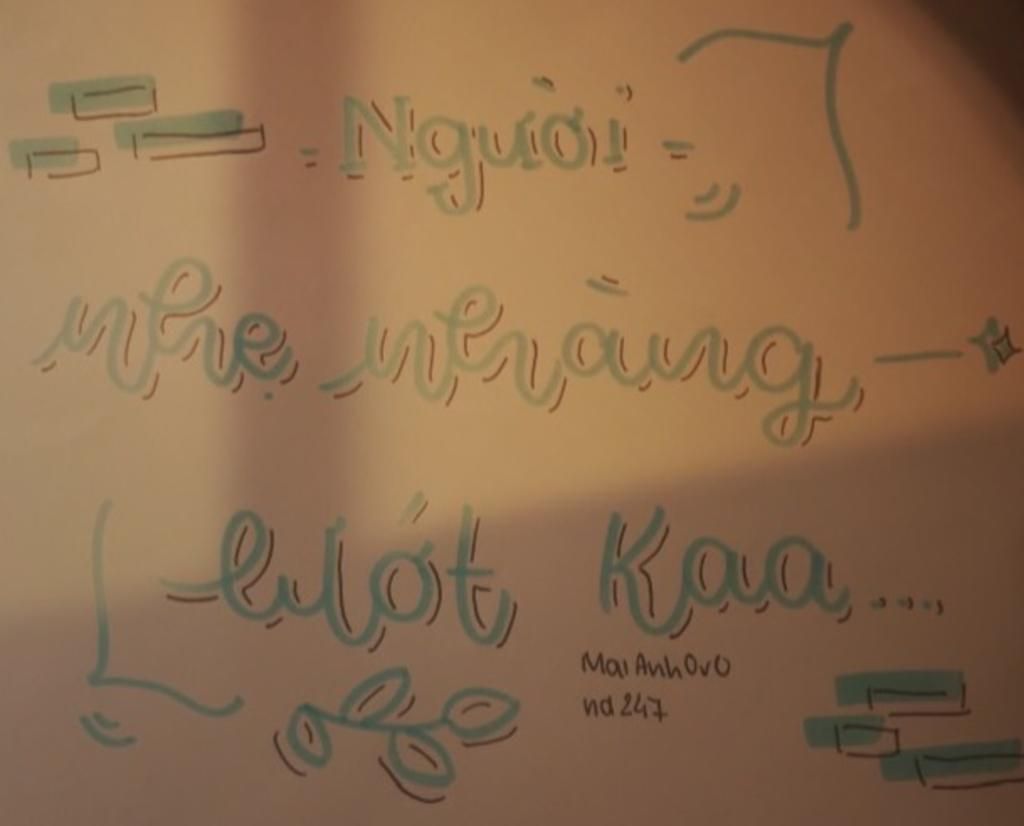 - Người -
nhẹ nhàng
lướt Kaa....
MaiAnhOvO
nd247